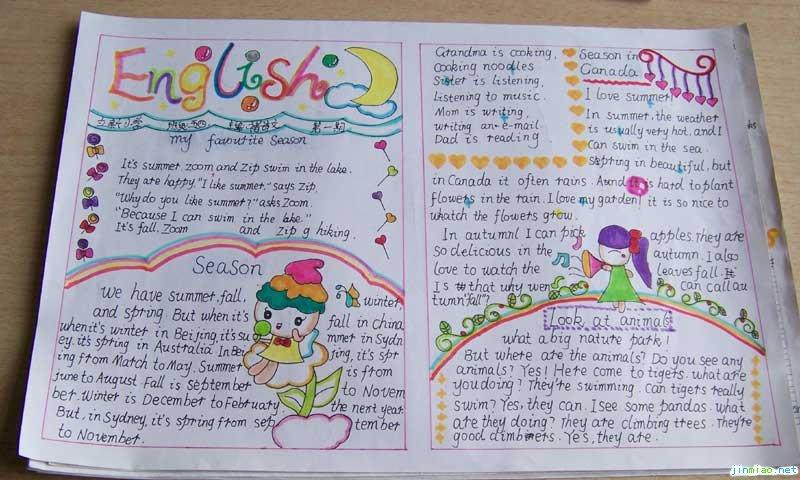 English
第一期
my favourite Season
It's summer. zoom and Zip swim in the lake.
They are happy. "I like summer," says Zip.
"Why do you like summer?" asks Zoom.
"Because I can swim in the lake."
It's fall. Zoom and Zip g hiking.
Season
We have summer, fall, winter,
and spring. But when it's fall in china
when it's winter in Beijing, it's summer in Sydn
ey. it's spring in Australia. In Beijing, it's spr
ing from March to May. Summer is from
June to August. Fall is September to Novem
ber. Winter is December to February the next year.
But, in Sydney, it's spring from september
to November.
Grandma is cooking,
Cooking noodles
Sister is listening,
Listening to music.
Mom is writing,
writing an e-mail.
Dad is reading.
Season in
Canada
I love summer!
In summer, the weather
is usually very hot, and I
can swim in the sea.
Spring in beautiful, but
in Canada it often rains. Aound it is hard to plant
flowers in the rain. I love my garden! it is so nice to
whatch the flowers grow.
In autumn I can pick apples. They are
so delicious in the autumn. I also
love to watch the leaves fall. It
Is that why we can call au
tumn "fall"?
Look at animals
what a big nature park!
But where are the animals? Do you see any
animals? Yes! Here come to tigers. what are
you doing? They're swimming. Can tigers really
swim? Yes, they can. I see some pandas. what
are they doing? They are climbing trees. They're
good climbers. Yes, they are.
jinmiao.net